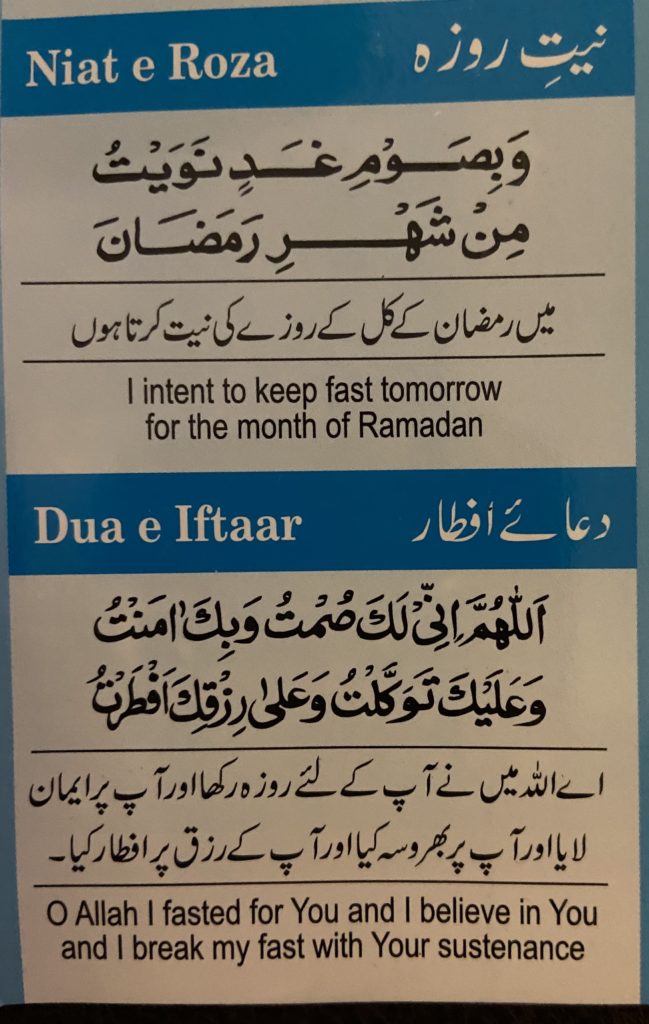 Niat e Roza نیتِ روزہ
وَبِصَوْمِ غَدٍ نَوَيْتُ
مِنْ شَهْرِ رَمَضَانَ
میں رمضان کے کل کے روزے کی نیت کرتا ہوں
I intent to keep fast tomorrow
for the month of Ramadan
Dua e Iftaar دعائے افطار
اَللّٰهُمَّ اِنِّىْ لَكَ صُمْتُ وَبِكَ اٰمَنْتُ
وَعَلَيْكَ تَوَكَّلْتُ وَعَلٰى رِزْقِكَ اَفْطَرْتُ
اے اللہ میں نے آپ کے لئے روزہ رکھا اور آپ پر ایمان
لایا اور آپ پر بھروسہ کیا اور آپ کے رزق پر افطار کیا۔
O Allah I fasted for You and I believe in You
and I break my fast with Your sustenance